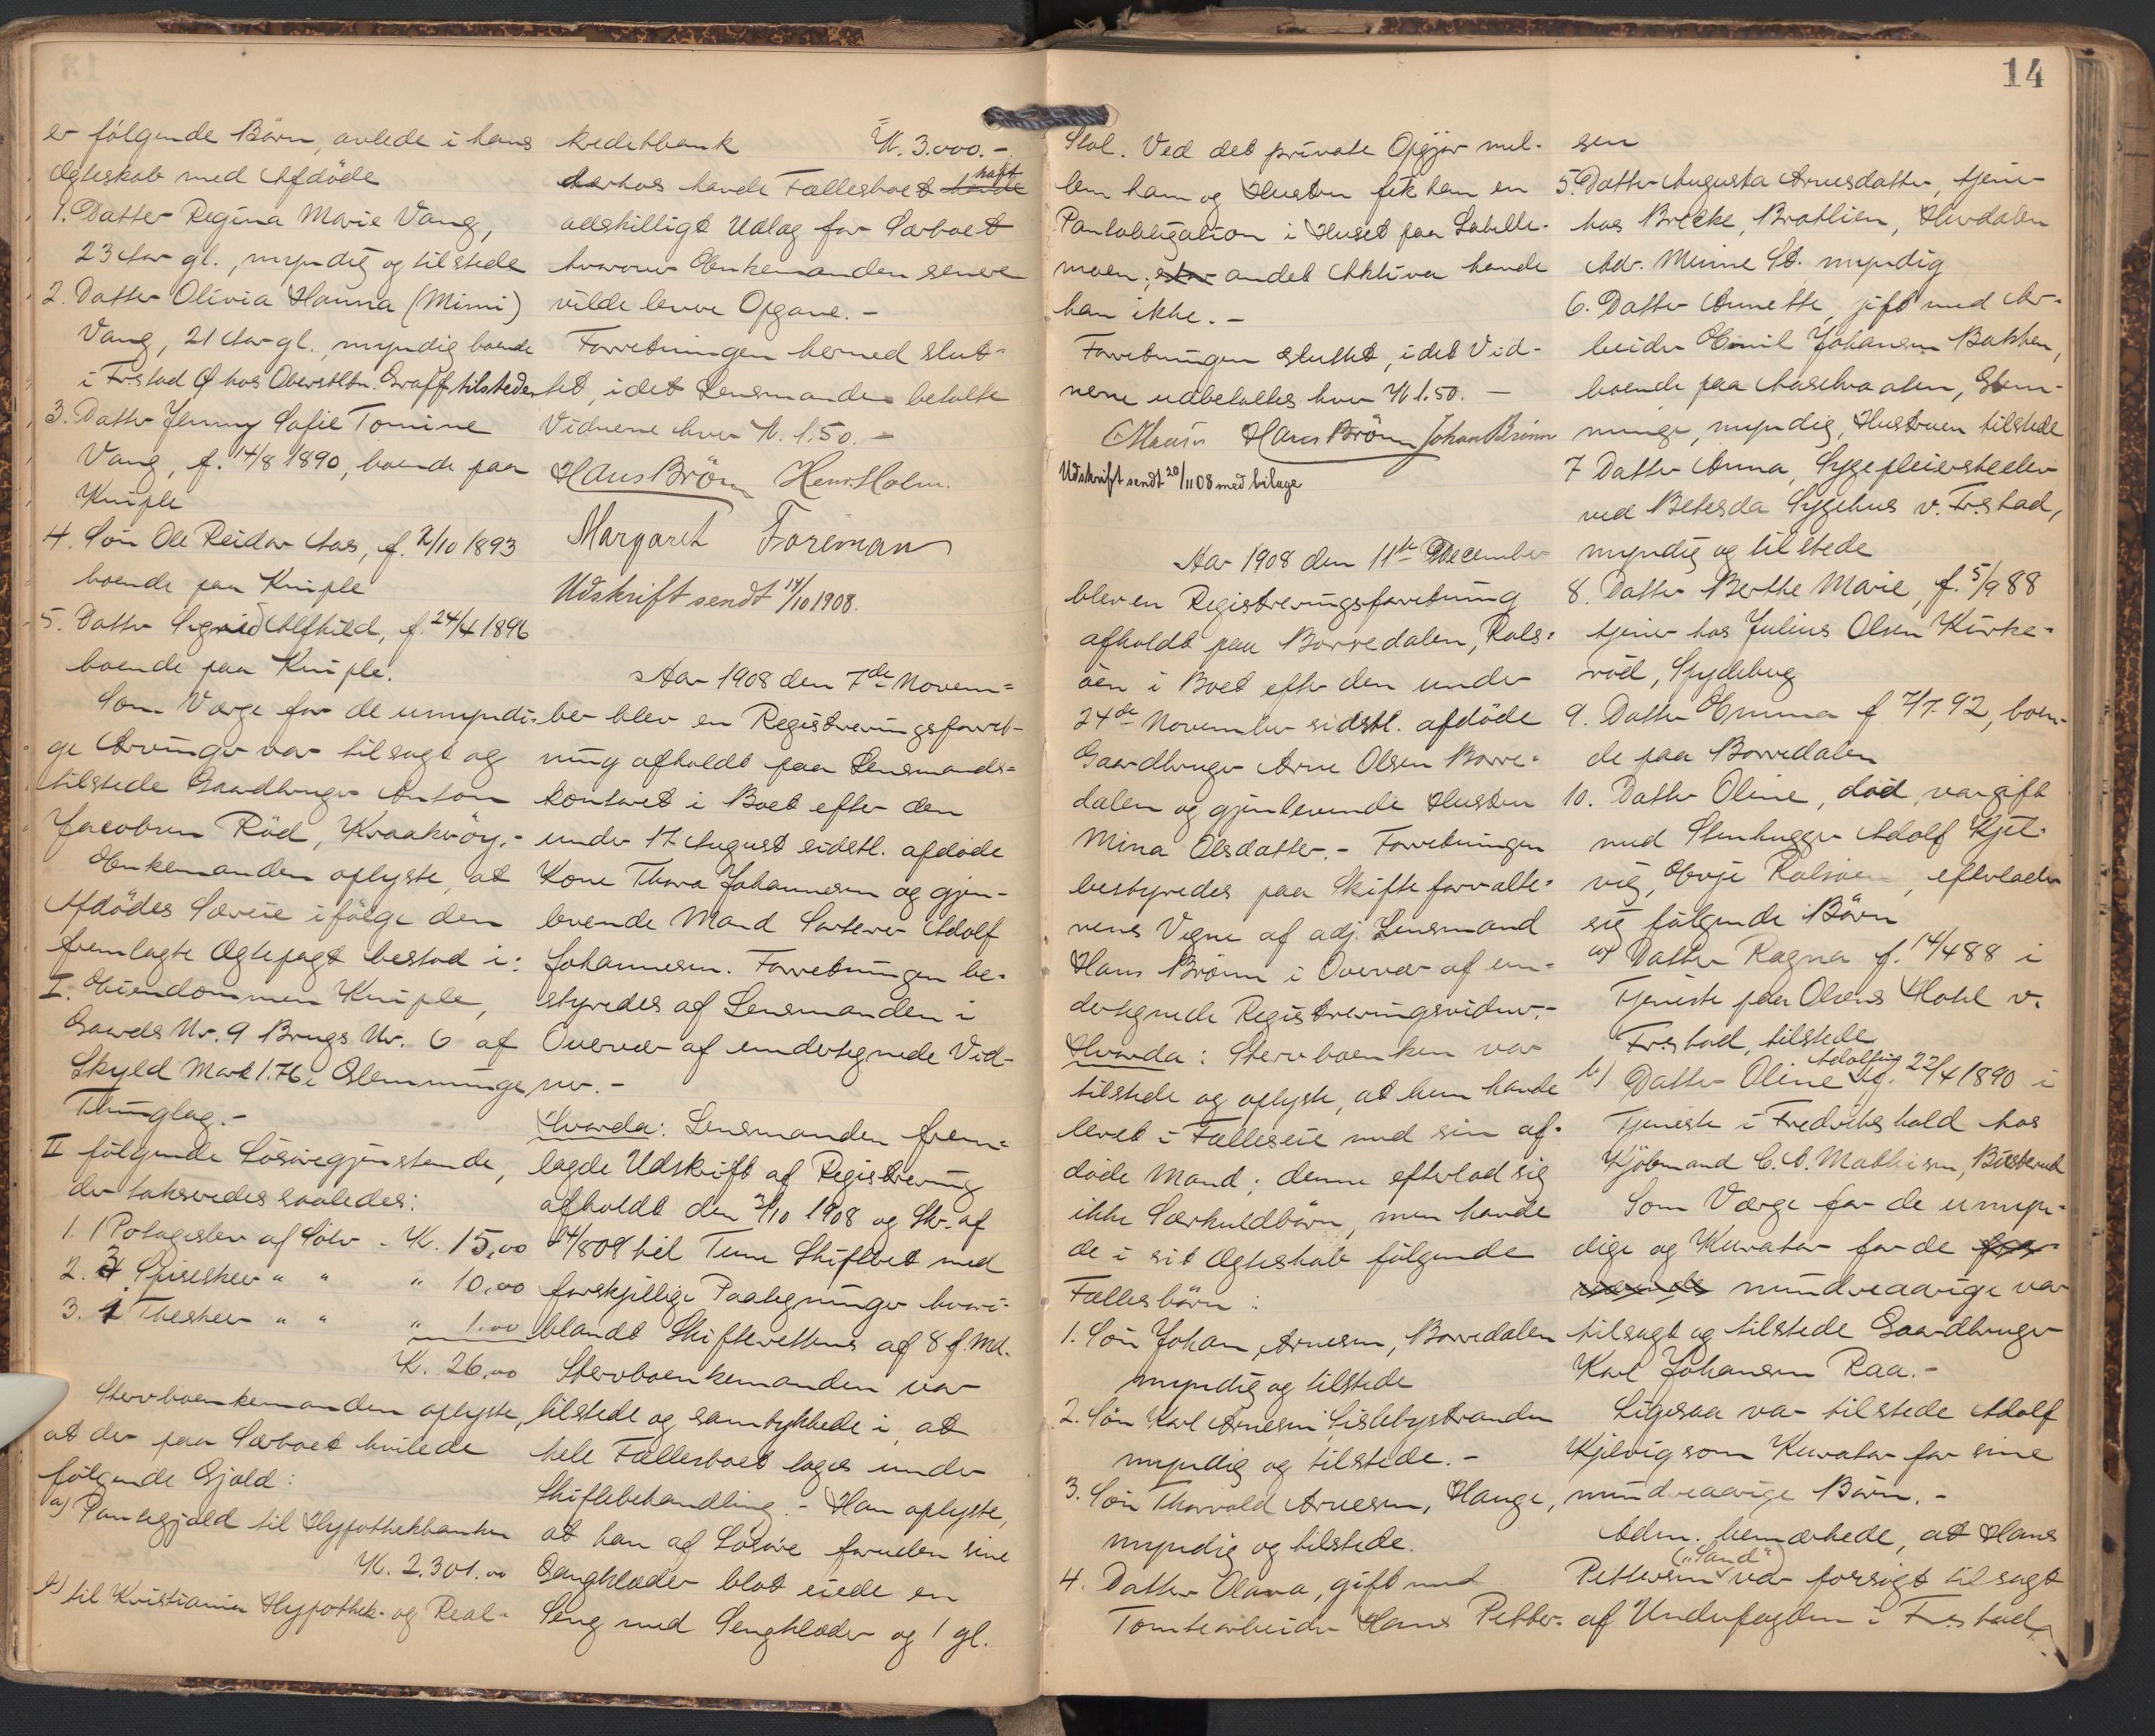 14
er følgende Børn, avlede i hans
Ægteskab med Afdøde
1. Datter Regina Marie Vang,
23 Aar gl., myndig og tilstede
2. Datter Olivia Hanna (Mimi)
Vang, 21 Aar gl., myndig boende
i Fr.stad hos Oberstltn. Graff tilstede
3. Datter Jenny Sofie Tomine
Vang, f. 14/8 1890, boende paa
Kniple
4. Søn Ole Reidar Aas, f. 2/10 1893
boende paa Kniple
5. Datter Sigrid Alfhild, f. 24/4 1896
boende paa Kniple.
Som Værge for de umyndi-
ge Arvinger var tilsagt og
tilstede Gaardbruger Anton
Jacobsen Rød, Kraakerøy.-
Enkemanden oplyste, at
Afdødes Særeie ifølge den
fremlagte Ægtepagt bestod i:
I. Eiendommen Kniple,
Gaards Nr. 9 Brugs Nr. 6 af
Skyld Mark 1.76 i Glemminge
Thinglag.-
II følgende Løsøregjenstande,
der taksredes saaledes:
1. 1 Potageslev af Sølv - Kr. 15,00
2. 3 Spiseskeer " " " 10,00
3. 1 Theskeer " " " 1.00
Kr. 26,00
Stervboenkemanden oplyste,
at der paa Særboet hvilede
følgende Gjæld:
a) Pantegjæld til Hypothekbanken
Kr. 2.301.00
b) til Kristiania Hypothek- og Real-
kreditbank Kr. 3.000.-
derhos havde Fællesboet havt
adskilligt Udlæg for Særboet
hvorover Enkemanden senere
vilde levere Opgave.-
Forretningen hermed slut-
tet, idet Lensmanden betalte
Vidnerne hver Kr. 1.50.-
Hans Brönn Henr. Holm.
Margaret Foreman
Udskrift sendt 14/10 1908.
Aar 1908 den 7de Novem-
ber blev en Registreringsforret-
ning afholdt paa Lensmands-
kontoret i Boet efter den
under 17 August sidstl. afdøde
Kone Thora Johannesen og gjen-
levende Mand Sorterer Adolf
Johannesen. Forretningen be-
styredes af Lensmanden i
Overvær af undertegnede Vid-
ner.-
Hvorda: Lensmanden frem-
lagde Udskrift af Registrering
afholdt den 3/10 1908 og Skr. af
14/8 08 til Tune Skifteret med
forskjellige Paategninger hvori-
blandt Skifterettens af 8 f. Md.
Stervboenkemanden var
tilstede og samtykkede i, at
hele Fællesboet toges under
Skiftebehandling.- Han oplyste,
at han af Løsøre foruden sine
Gangklæder blot eiede en
Seng med Sengklæder og 1 gl.
Stol. Ved det private Opgjør mel-
lem ham og Hustru fik han en
Pantobligation i Huset paa Labelle-
moen; andet Aktiva havde
han ikke.-
Forretningen sluttet, idet Vid-
nerne udbetaltes hver Kr 1.50.-
Hans Brönn Johan Brönn
Udskrift sendt 20/11 08 med bilage
Aar 1908 den 11te December
blev en Registreringsforretning
afholdt paa Borredalen, Rols-
øen i Boet efter den under
24de November sidstl. afdøde
Gaardbruger Arne Olsen Borre-
dalen og gjenlevende Hustru
Mina Olsdatter.- Forretningen
bestyredes paa Skifteforvalte-
rens Vegne af adj. Lensmand
Hans Brönn i Overvær af un-
dertegnede Registreringsvidner.-
Hvorda: Stervboenken var
tilstede og oplyste, at hun havde
levet i Fælleseie med sin af-
døde Mand; denne efterlod sig
ikke Særkuldbørn, men havde
de i sit Ægteskab følgende
Fællesbørn:
1. Søn Johan Arnesen, Borredalen
myndig og tilstede
2. Søn Karl Arnesen Lislebystranden
myndig og tilstede.-
3. Søn Thorvald Arnesen, Hauge,
myndig og tilstede.
4. Datter Olava, gift med
Tomtearbeider Hans Petter-
sen
5. Datter Augusta Arnesdatter, tjener
hos Brecke, Bratlien, Hurdalen
Adr. Minne St. myndig
6. Datter Annette, gift med Ar-
beider Emil Johansen Bakken,
boende paa Aaselvaalen, Glem-
minge, myndig, Hustruen tilstede
7 Datter Anna, Sygepleierske elev
ved Betesda Sygehus v. Fr.stad,
myndig og tilstede
8. Datter Berthe Marie, f. 5/9 88
tjener hos Julius Olsen Kirke-
rød, Spydeberg
9. Datter Emma f 7/7 92, boen-
de paa Borredalen
10. Datter Oline, død, var gift
med Stenhugger Adolf Kjel-
vig, Evje Rolsøen, efterlader
sig følgende Børn
a) Datter Ragna f. 14/4 88 i
Tjeneste paa Olsens Hotel v.
Fr.stad, tilstede
b) Datter Oline Adolfine f. 22/4 1890 i
Tjeneste i Fredrikshald hos
Kjøbmand C. A. Mathisen, Busterud
Som Værge for de umyn-
dige og Kurator for de
mindreaarige var
tilsagt og tilstede Gaardbruger
Karl Johansen Raa.-
Ligesaa var tilstede Adolf
Kjelvig som Kurator for sine
mindreaarige Børn.-
Adm. bemærkede, at Hans
Pettersen ("Sand") var forsøgt tilsagt
af Underfogden i Fr.stad,